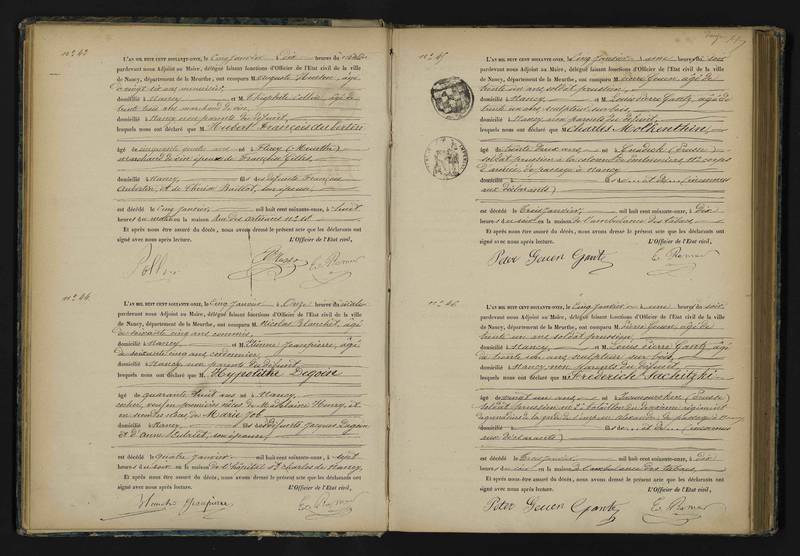 L'AN MIL HUIT CENT SOIXANTE-ONZE, le cinq janvier à dix heures du matin
pardevant nous Adjoint au Maire, délégué faisant fonctions d'Officier de l'Etat civil de la ville
de Nancy, département de la Meurthe, ont comparu M. Auguste âgé
de vingt six ans menuisier,
domicilié à Nancy et M. Théophile âgé de
trente trois ans marchand de vin,
domicilié à Nancy non parents du défunt,
lesquels nous ont déclaré que M. Hubert François Aubertin
âgé de cinquante quatre ans né à Flavy (Meurthe)
marchand de vin époux de Françoise Gilles,
domicilié à Nancy fils des défunts François
Aubertin, et de Thérèse Baillot, son épouse,
est décédé le cinq janvier mil huit cent soixante-onze, à huit
heures du matin en la maison rue des artisans n° 18
Et après nous être assuré du décès, nous avons dressé le présent acte que les déclarants ont
signé avec nous après lecture. L'Officier de l'Etat civil,
L'AN MIL HUIT CENT SOIXANTE-ONZE, le cinq janvier à onze heures du matin
pardevant nous Adjoint au Maire, délégué faisant fonctions d'Officier de l'Etat civil de la ville
de Nancy, département de la Meurthe, ont comparu M. Nicolas Blanchet, âgé
de soixante cinq ans commis,
domicilié à Nancy et M. Etienne Jeanpierre, âgé
de soixante cinq ans cordonnier,
domicilié à Nancy non parents du défunt
lesquels nous ont déclaré que M. Hyppolithe Degoin
âgé de quarante huit ans né à Nancy,
veuf en premières noces de Madelaine Henry, et
en secondes noces de Marie Job
domicilié à Nancy fils des défunts Jacques Degoin
et d'Anne son épouse
est décédé le quatre janvier mil huit cent soixante-onze, à sept
heures du soir en la maison de l'hôpital St Charles de Nancy,
Et après nous être assuré du décès, nous avons dressé le présent acte que les déclarants ont
signé avec nous après lecture. L'Officier de l'Etat civil,
Jeanpierre
n° 45
L'AN MIL HUIT CENT SOIXANTE-ONZE, le cinq janvier à une heure du soir
pardevant nous Adjoint au Maire, délégué faisant fonctions d'Officier de l'Etat civil de la ville
de Nancy, département de la Meurthe, ont comparu M. Pierre Geuen âgé de
trente un ans soldat prussien,
domicilié à Nancy et M. Louis Pierre Gantz, âgé de
trente un ans sculpteur sur bois,
domicilié à Nancy non parents du défunt,
lesquels nous ont déclaré que M. Charles Molkenthin,
âgé de trente deux ans né à (Prusse)
soldat prussien à la colonne d'infanterie corps
d'armée de passage à Nancy
domicilié à (inconnus
aux déclarants)
est décédé le trois janvier mil huit cent soixante-onze, à dix
heures du soir en la maison de l'ambulance des tabacs,
Et après nous être assuré du décès, nous avons dressé le présent acte que les déclarants ont
signé avec nous après lecture. L'Officier de l'Etat civil,
Peter Geuen Gantz
n° 46
L'AN MIL HUIT CENT SOIXANTE-ONZE, le cinq janvier à une heure du soir
pardevant nous Adjoint au Maire, délégué faisant fonctions d'Officier de l'Etat civil de la ville
de Nancy, département de la Meurthe, ont comparu M. Pierre Geuen, âgé de
trente un ans soldat prussien,
domicilié à Nancy et M. Louis Pierre Gantz âgé
de trente un ans sculpteur sur bois,
domicilié à Nancy non parents du défunt
lesquels nous ont déclaré que M. Frederich Sackitzki
âgé de vingt un ans né à (Prusse)
soldat prussien au 2e bataillon du régiment
de grenadiers de la garde de l'empereur Alexandre, de passage à Nancy
domicilié à (inconnus
aux déclarants)
est décédé le trois janvier mil huit cent soixante-onze, à dix
heures du soir en la maison de l'ambulance des tabacs,
Et après nous être assuré du décès, nous avons dressé le présent acte que les déclarants ont
signé avec nous après lecture. L'Officier de l'Etat civil,
Peter Geuen Gantz